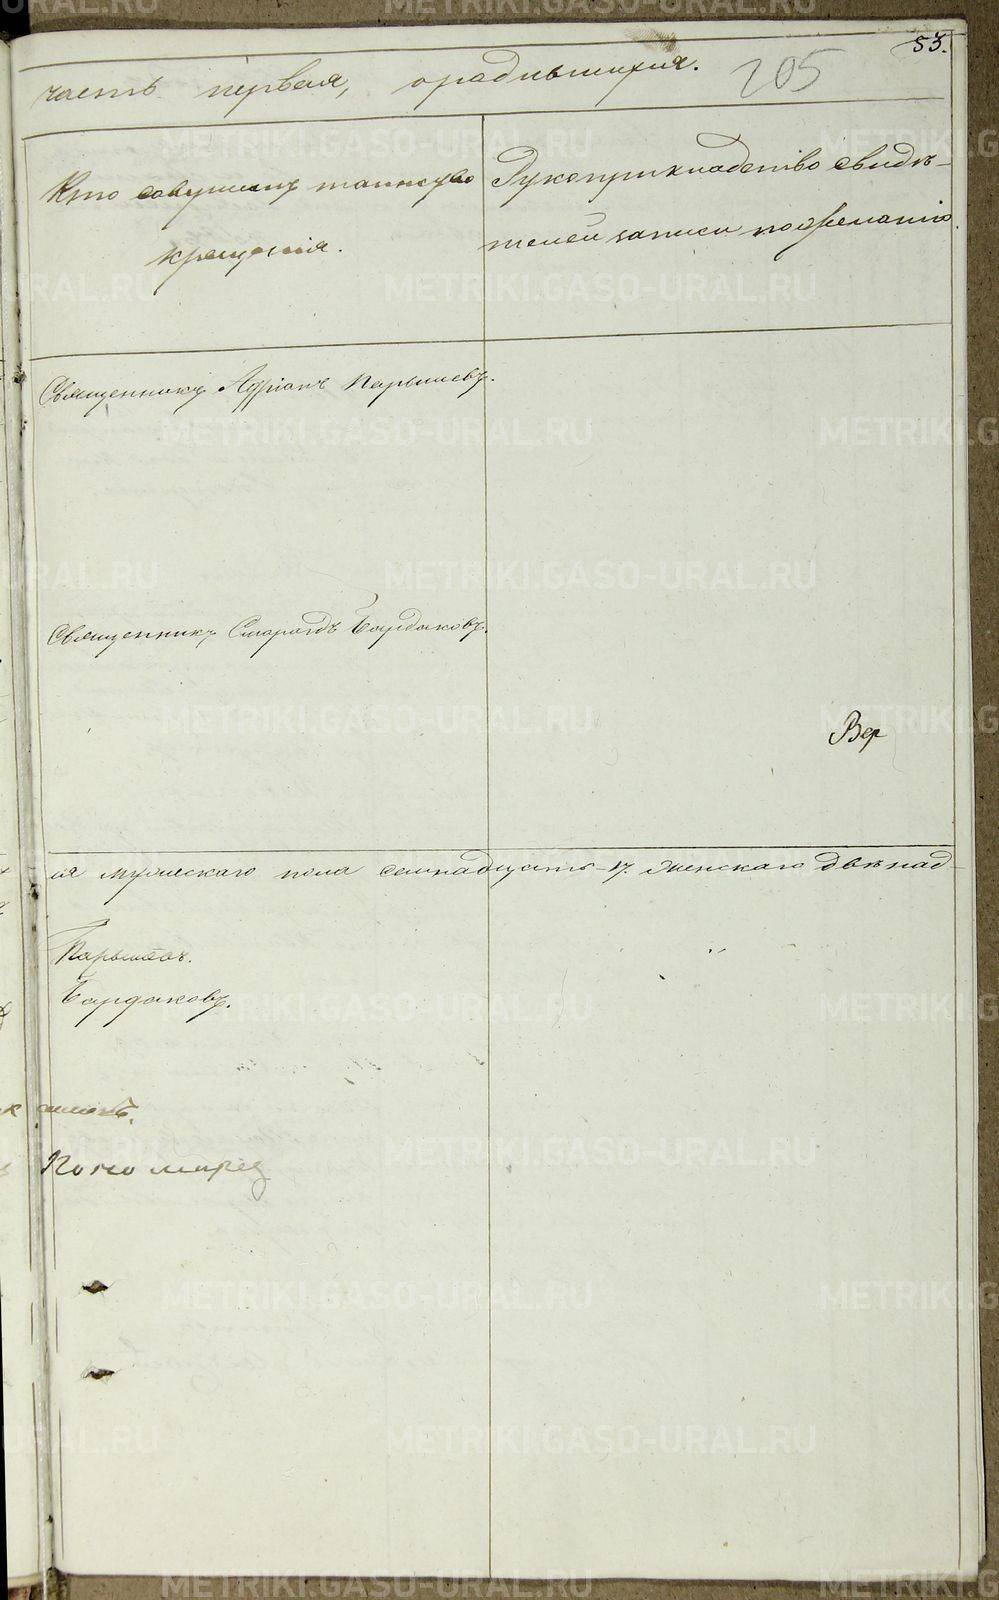 53.
часть первая, о родившихся. 205
Кто совершилъ таинство
крещенія.
Рукоприкладство свидѣ-
телей записи по желанію
Священникъ Адріанъ Парышевъ.
Священникъ Смарагдъ Бардаковъ.
Вер
ся мужескаго пола семнадцать 17. Женскаго двѣнад-
Парышевъ.
Бардаковъ.
Пономарев
METRIKI.GASO-URAL.RU